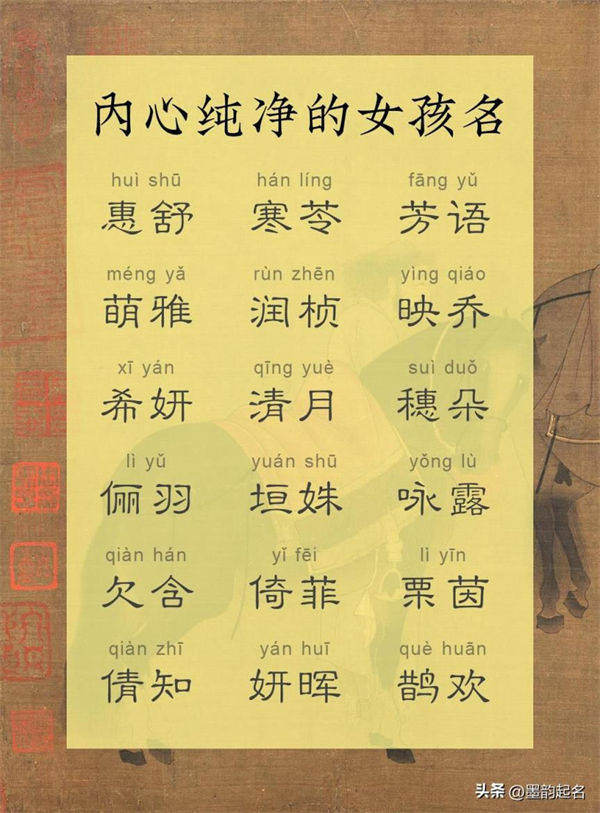 内心纯净的女孩名
huì shū hán líng fāng yǔ
惠舒 寒苓 芳语
méng yǎ rùn zhēn yìng qiáo
萌雅 润桢 映乔
xī yán qīng yuè suì duǒ
希妍 清月 穗朵
lì yǔ yuán shū yǒng lù
俪羽 垣姝 咏露
qiàn hán yǐ fēi lì yīn
欠含 倚菲 栗茵
qiàn zhī yán huī què huān
倩知 妍晖 鹊欢
头条 @墨韵起名